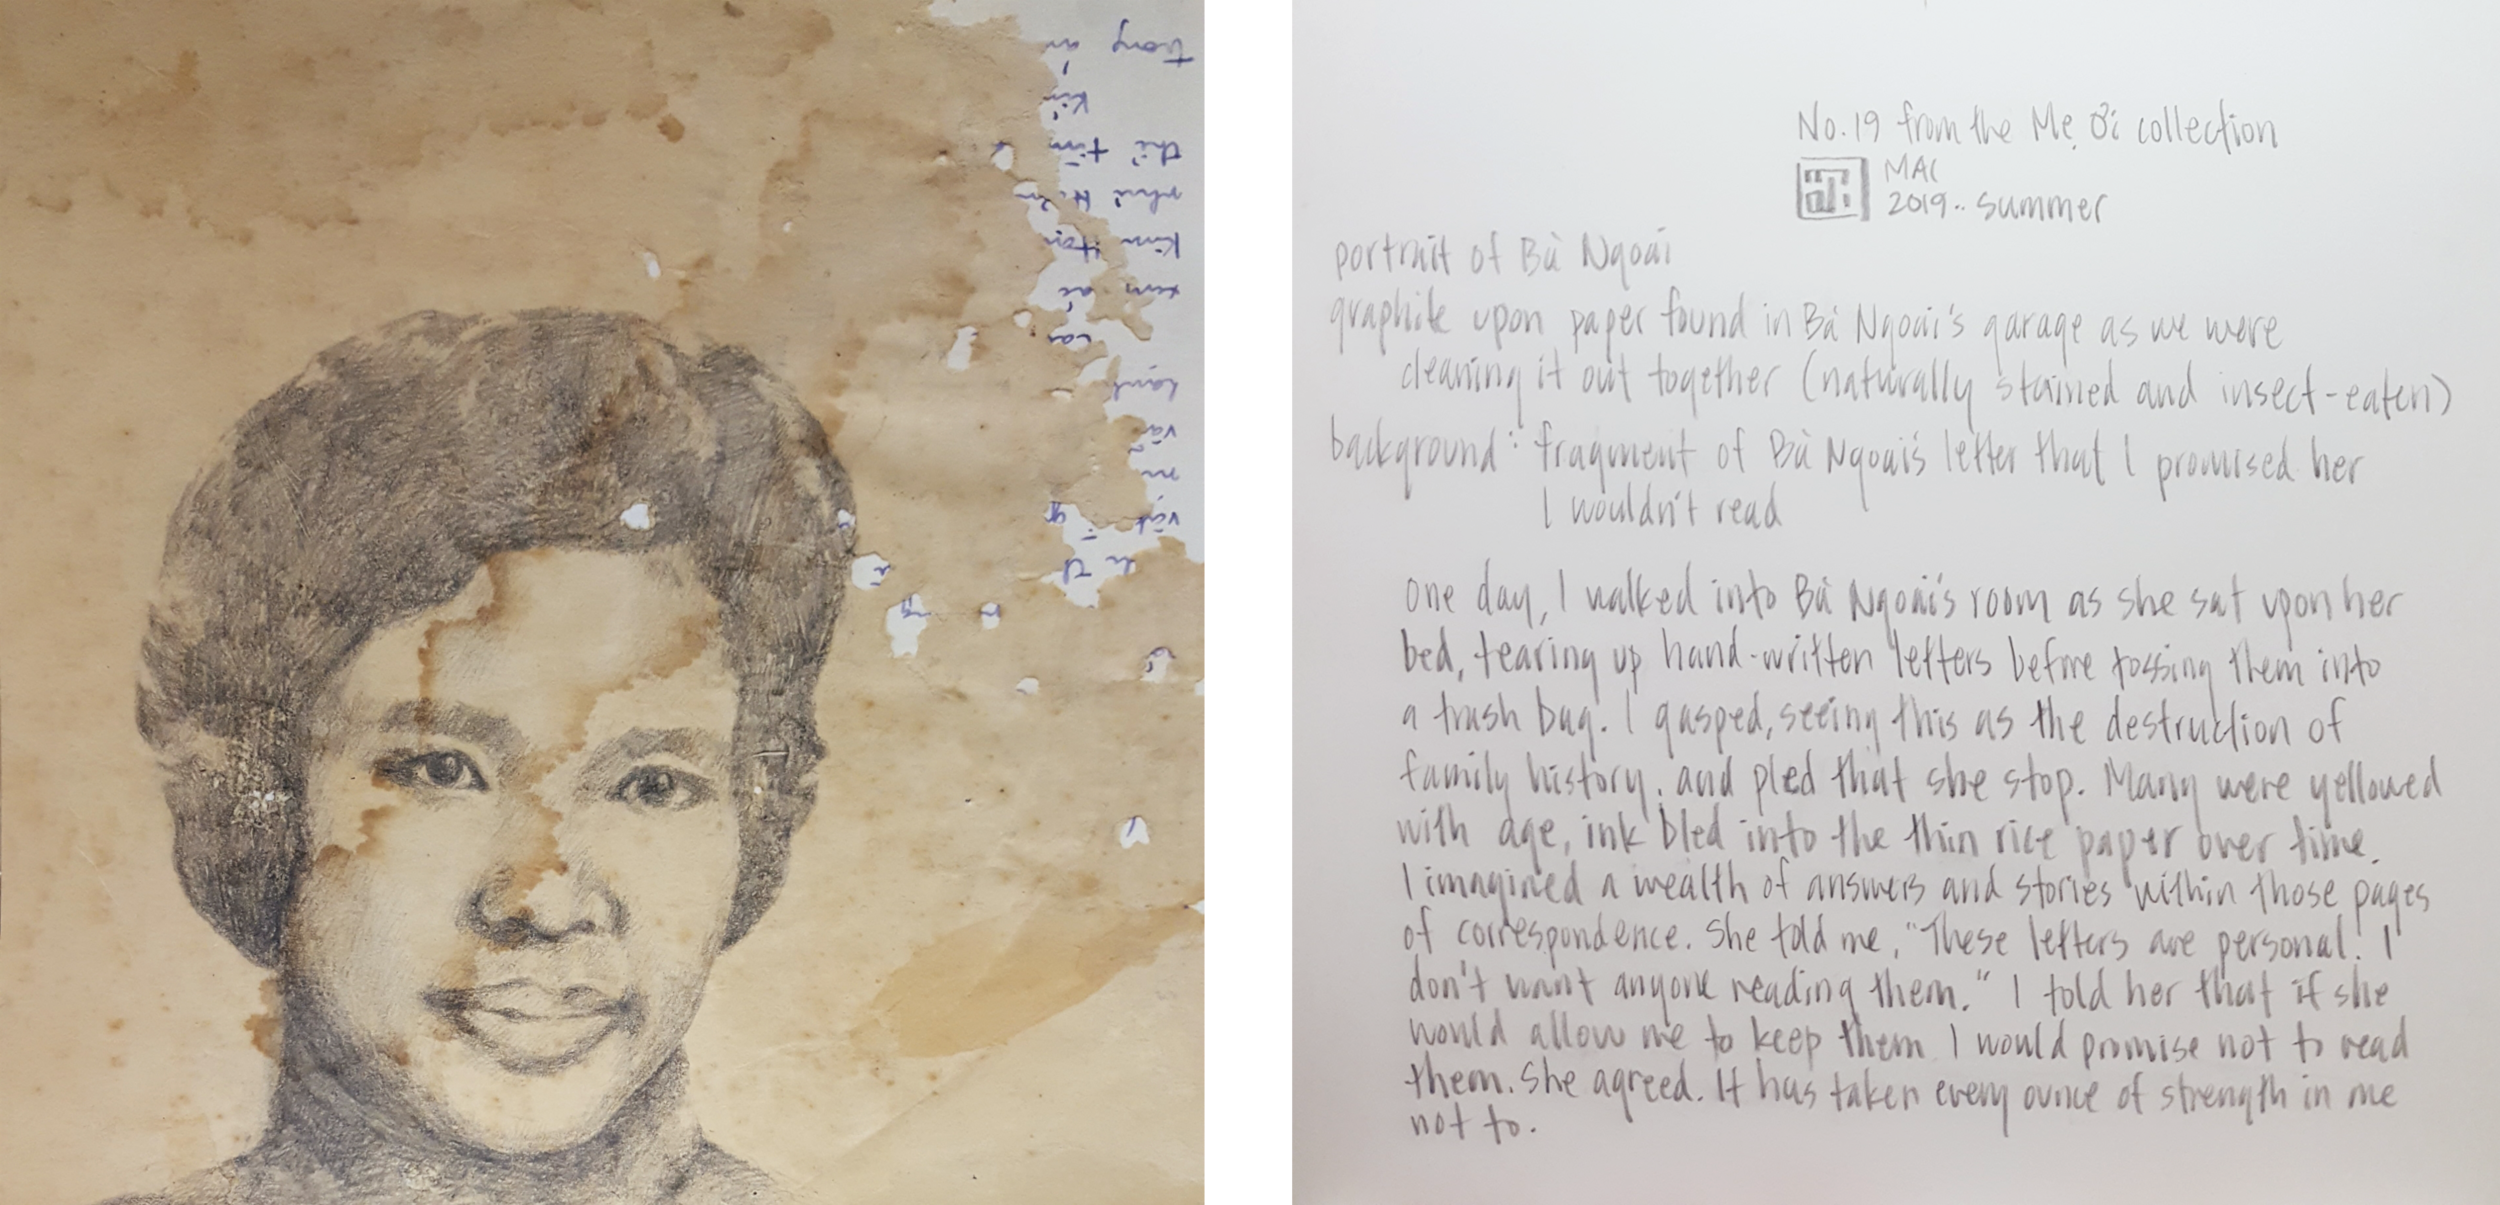 No. 19 from the Mẹ Ơi collection
MAC
2019.. summer
portrait of Bà Ngoại
graphite upon paper found in Bà Ngoại's garage as we were
cleaning it out together (naturally stained and insect-eaten)
background: fragment of Bà Ngoại's letter that I promised her
I wouldn't read
One day, I walked into Bà Ngoại's room as she sat upon her
bed, tearing up hand-written letters before tossing them into
a trash bag. I gasped, seeing this as the destruction of
family history, and pled that she stop. Many were yellowed
with age, ink bled into the thin rice paper over time.
I imagined a wealth of answers and stories within those pages
of correspondence. She told me, "These letters are personal! I
don't want anyone reading them." I told her that if she
would allow me to keep them I would promise not to read
them. She agreed. It has taken every ounce of strength in me
not to.